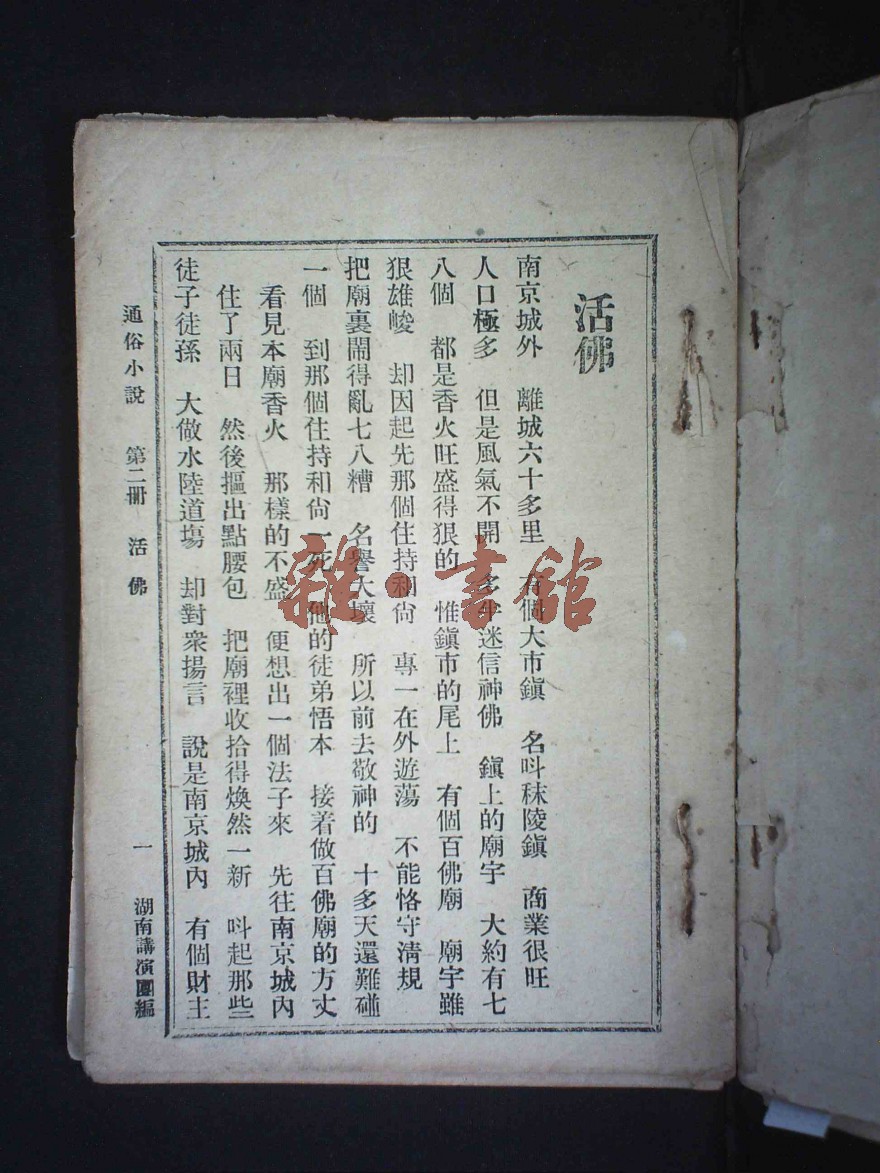 活佛
南京城外　離城六十多里　有個大市鎮　名呌秣陵鎮　商業很旺
人口極多　但是風氣不開　多半迷信神佛　鎮上的廟宇　大約有七
八個　都是香火旺盛得狠的　惟鎮市的尾上　有個百佛廟　廟宇雖
狠雄峻　却因起先那個住持和尙　專一在外遊蕩　不能恪守清規
把廟裏鬧得亂七八糟　名譽大壞　所以前去敬神的　十多天還難碰
一個　到那個住持和尙一死　他的徒弟悟本　接着做百佛廟的方丈
看見本廟香火　那樣的不盛　便想出一個法子來　先往南京城內
住了兩日　然後摳出點腰包　把廟裡收拾得煥然一新　呌起那些
徒子徒孫　大做水陸道塲　却對衆揚言　說是南京城內　有個財主
通俗小說　第二冊　活佛　一　湖南講演團編
雜·書館